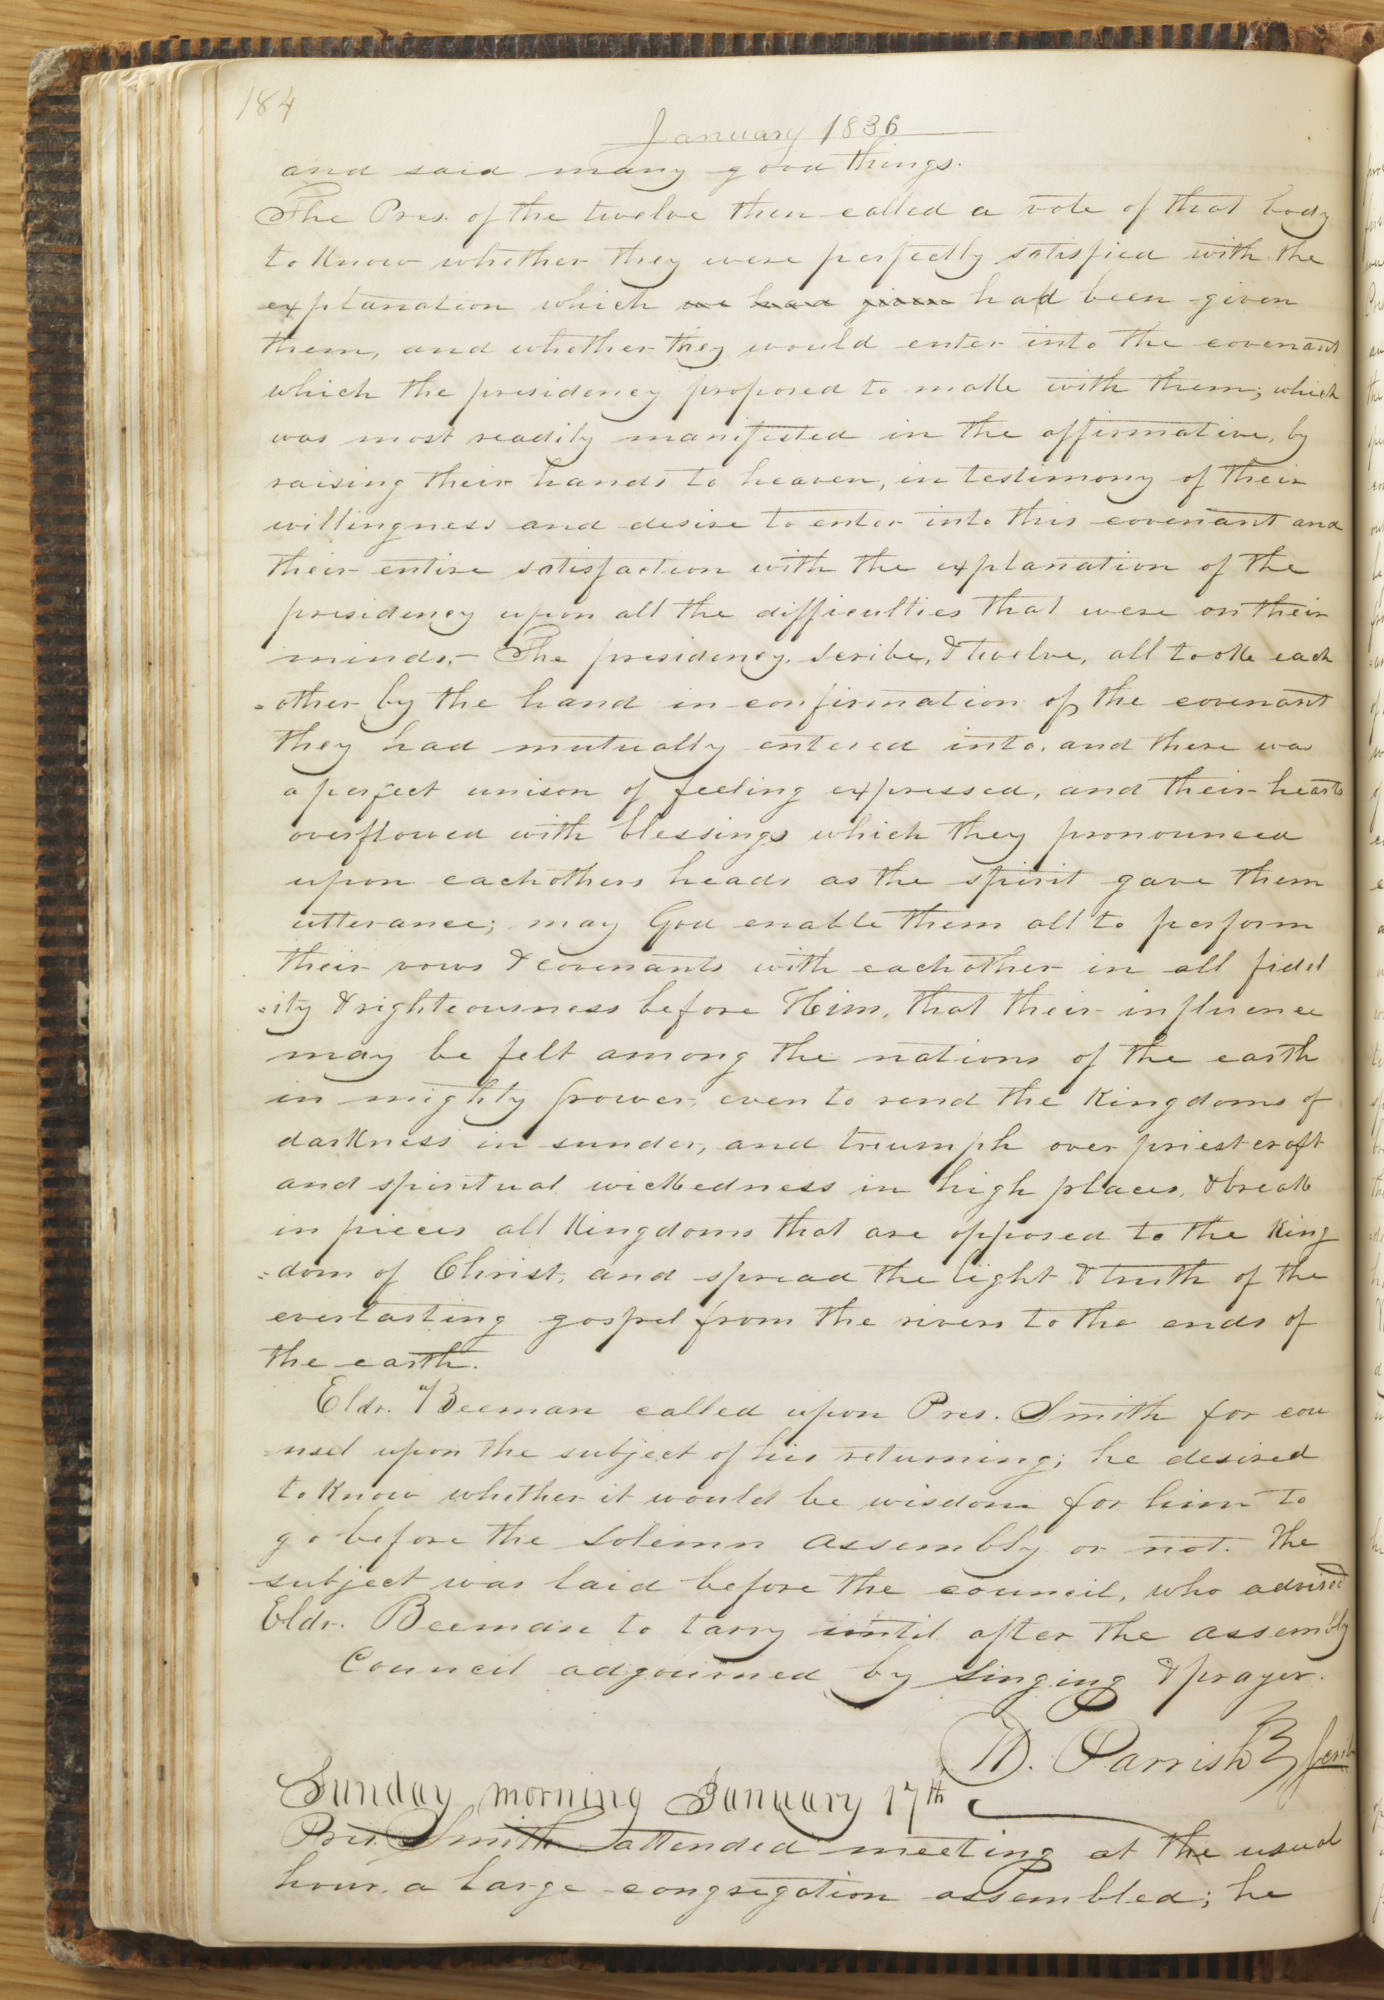 184
January 1836
and said many good things.
The Pres. of the twelve then called a vote of that body
to know whether they were perfectly satisfied with the
explanation which we had given had been given
them, and whether they would enter into the covenant
which the presidency proposed to make with them; which
was most readily manifested in the affirmative, by
raising their hands to heaven, in testimony of their
willingness and desire to enter into this covenant and
their entire satisfaction with the explanation of the
presidency upon all the difficulties that were on their
minds,— The presidency, scribe, & twelve, all took each
=other by the hand in confirmation of the covenant
they had mutually entered into, and there was
a perfect unison of feeling expressed, and their hearts
overflowed with blessings which they pronounced
upon eachothers heads as the spirit gave them
utterance; may God enable them all to perform
their vows & covenants with eachother in all fidel
=ity & righteousness before Him, that their influence
may be felt among the nations of the earth
in mighty power, even to rend the Kingdoms of
darkness in sunder, and triumph over priestcraft
and spiritual wickedness in high places, & break
in pieces all Kingdoms that are opposed to the King
=dom of Christ, and spread the light & truth of the
everlasting gospel from the rivers to the ends of
the earth.
Eldr. Beeman called upon Pres. Smith for cou
=nsel upon the subject of his returning; he desired
to know whether it would be wisdom for him to
go before the Solemn Assembly or not. The
subject was laid before the council, who advised
Eldr. Beeman to tarry until after the assembly
Council adjourned by singing & prayer.
W. Parrish Scribe
Sunday morning January 17th
Pres. Smith attended meeting at the usual
hour, a large congregation assembled; he